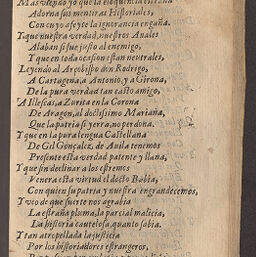 Mas viendo yo que la eloquencia estraña
Adorna sus mentiras Historiales,
Con cuyo afeyte la ignorancia engaña.
Y que nuestra verdad, nuestros Anales
Alaban si fue justo al enemigo,
Y que en toda ocasion estan neutrales,
Leyendo al Arçobispo don Rodrigo,
A Cartagena, a Antonio, y a Girona,
De la pura verdad tan casto amigo,
A Illescas, a Zurita en la Corona
De Aragon, al doctissimo Mariana,
Que la patria si yerra, no perdona.
Y que en la pura lengua Castellana
De Gil Gonçalez, de Auila tenemos
Presente esta verdad patente y llana,
Y que sin declinar a los estremos
Venera esta virtud el docto Babia,
Con quien su patria y nuestra engrandecemos,
Y veo de que suerte nos agrabia
La estraña pluma, la parcial malicia,
La historia cautelosa quanto sabia.
Y tan atropellada la justicia
Por los historiadores estrangeros,